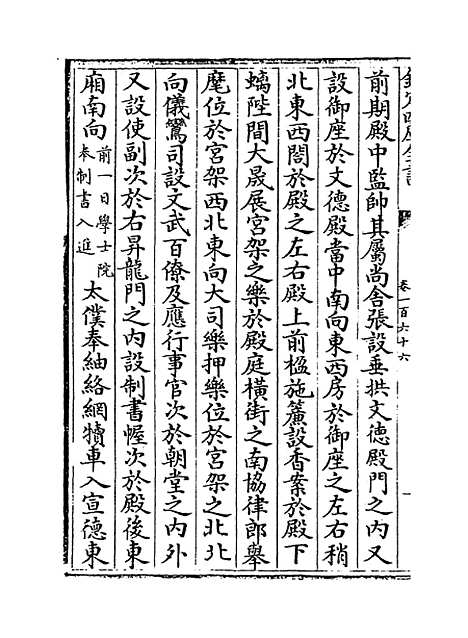 欽定四庫全書
卷一百六十六
前期殿中監帥其屬尚舍張設垂拱文德殿門之内又
設御座於文德殿當中南向東西房於御座之左右稍
北東西閤於殿之左右殿上前楹施簾設香案於殿下
螭陛間大晟展宫架之樂於殿庭横街之南協律郎舉
麾位於宫架西北東向大司樂押樂位於宫架之北北
向儀鸞司設文武百僚及應行事官次於朝堂之内外
又設使副次於右昇龍門之内設制書幄次於殿後東
廂南向前一日學士院奉制書入進太僕奉紬絡網犢車入宣德東